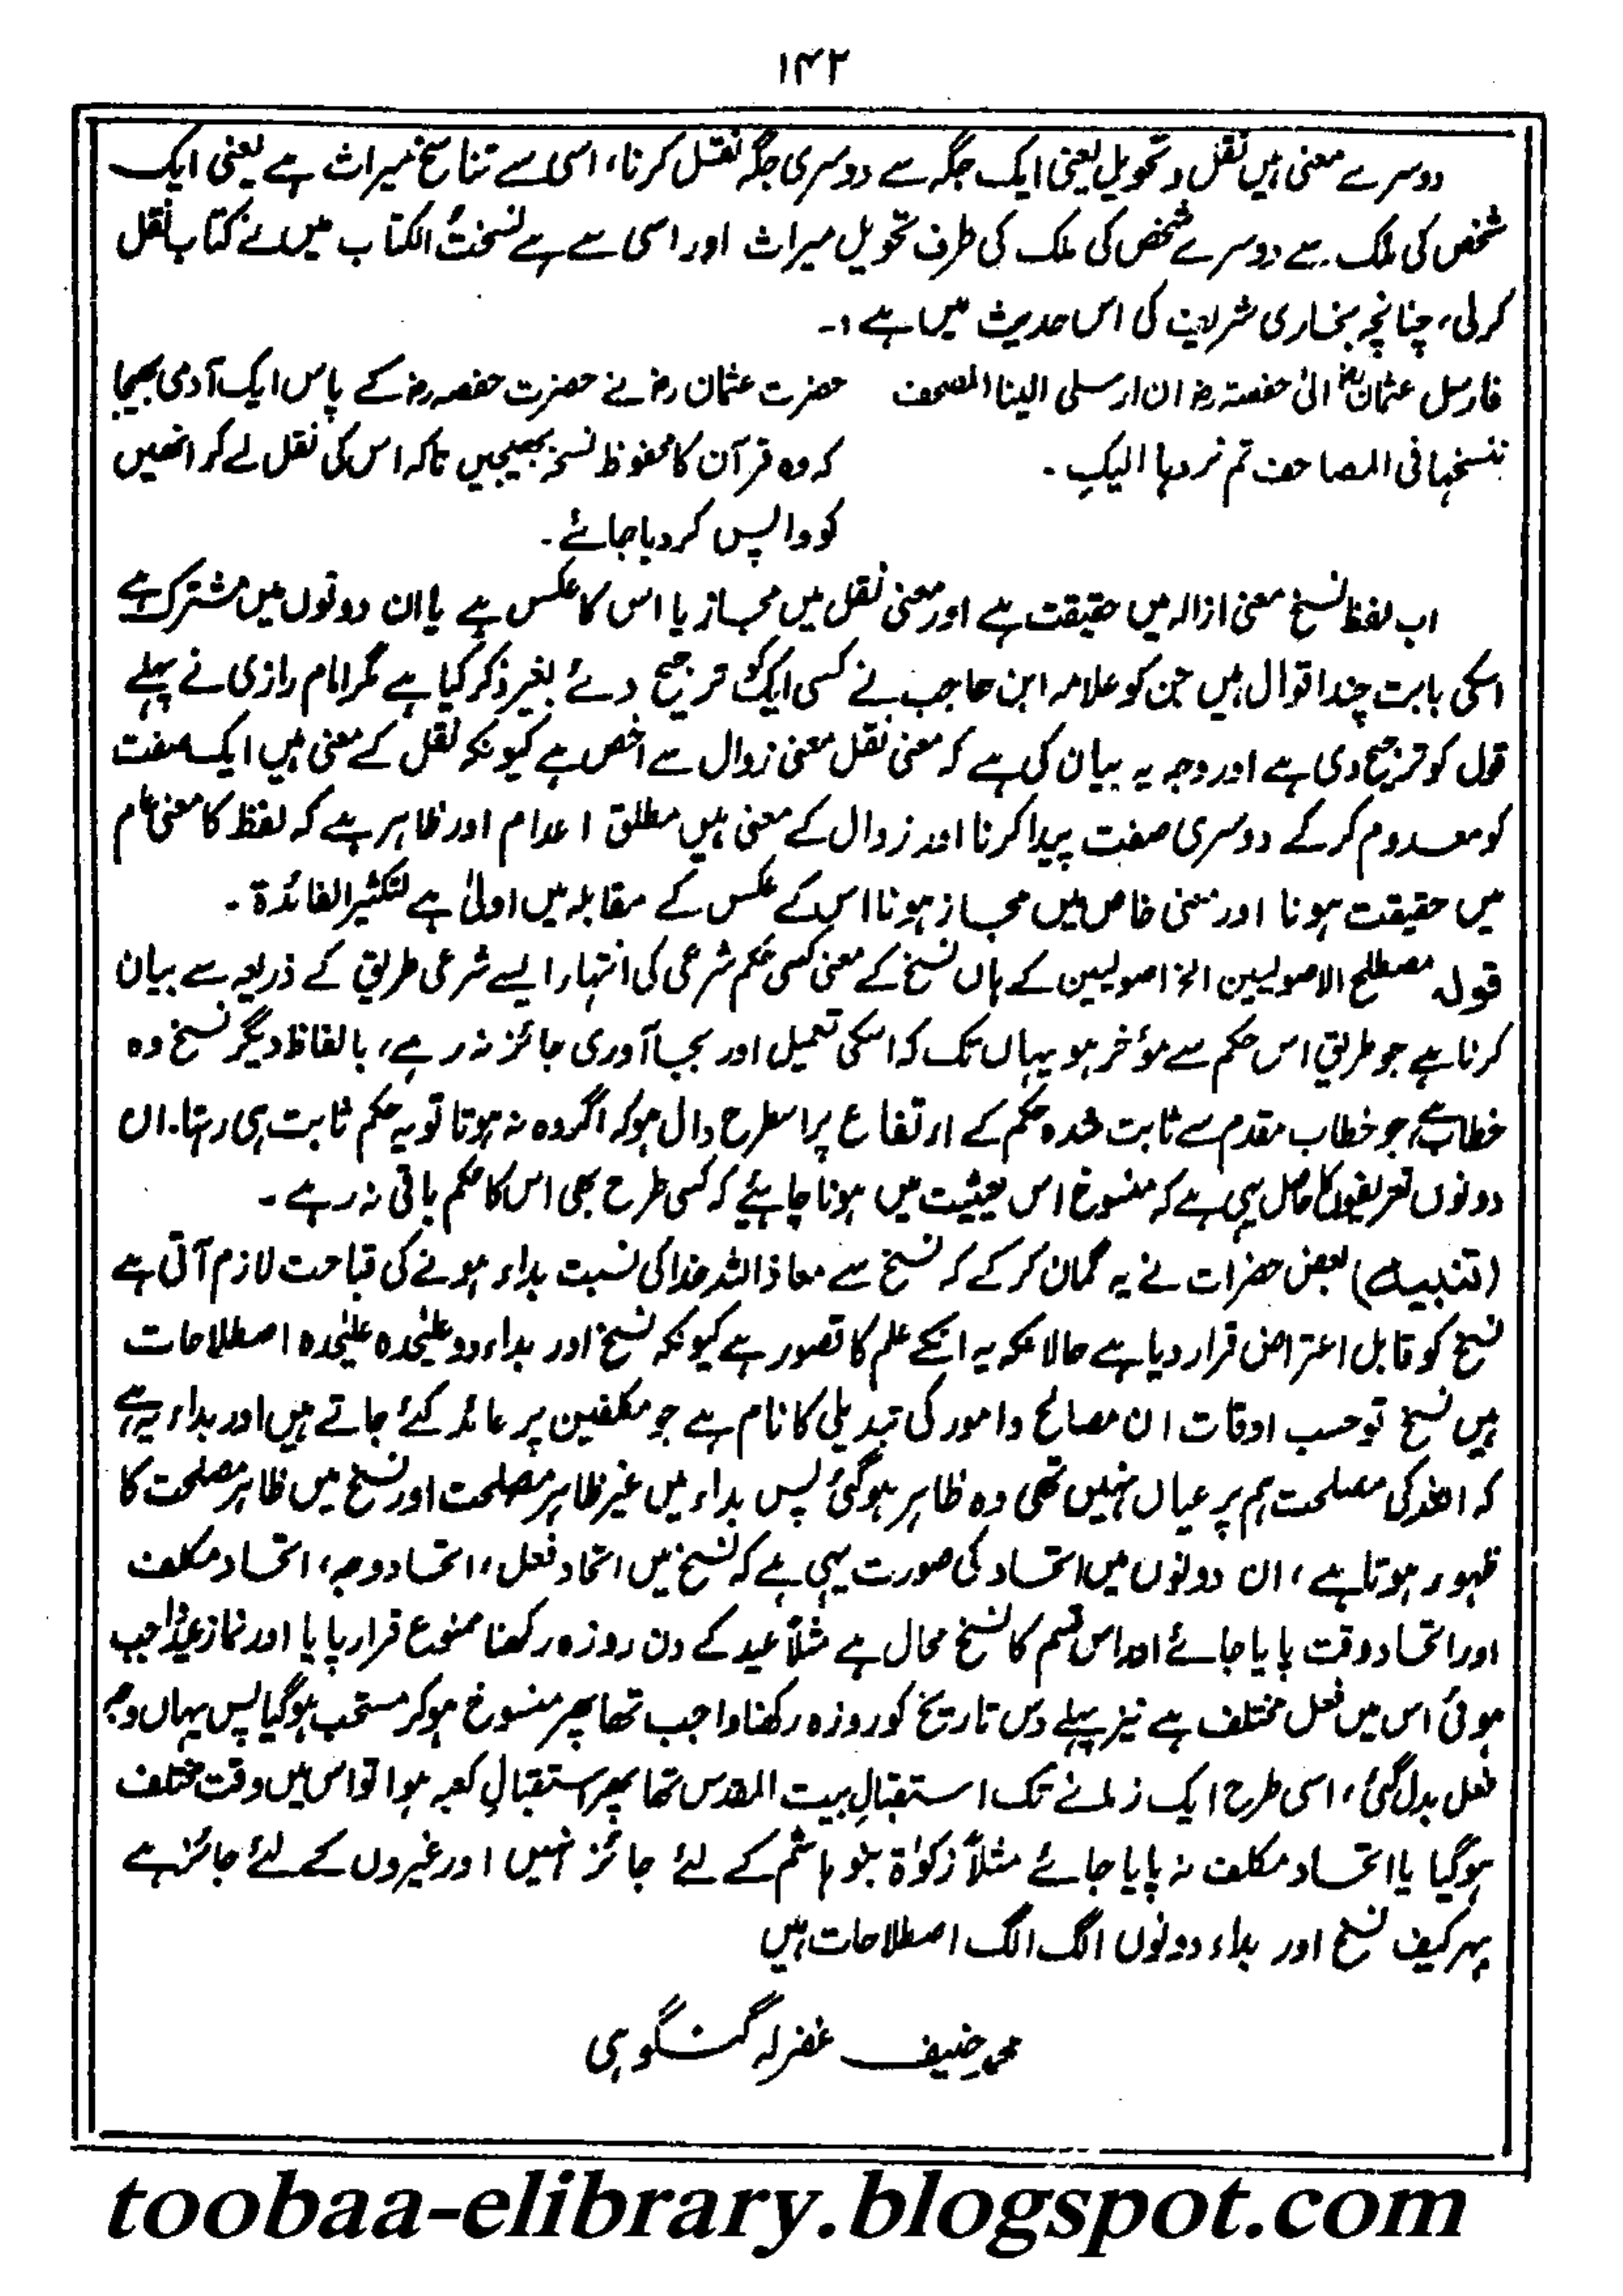 ۱۴۲
دوسرے معنی ہیں نقل و تحویل یعنی ایک جگہ سے دوسری جگہ نقل کرنا، اسی سے تناسخ میراث ہے یعنی ایک
شخص کی ملک سے دوسرے شخص کی ملک کی طرف تحویل میراث اور اسی سے ہے نسختُ الکتاب میں نے کتاب نقل
کرلی، چنانچہ بخاری شریف کی اس حدیث میں ہے :۔
فارسل عثمانؓ الیٰ حفصۃ رضـ ان ارسلی الینا المصحف حضرت عثمان رضـ نے حضرت حفصہ رضـ کے پاس ایک آدمی بھیجا
ننسخہا فی المصاحف ثم نردہا الیکِ ۔ کہ وہ قرآن کا محفوظ نسخہ بھیجیں تاکہ اس کی نقل لے کر انھیں
کو واپس کردیا جائے ۔
اب لفظ نسخ معنی ازالہ میں حقیقت ہے اور معنی نقل میں مجاز یا اس کا عکس ہے یا ان دونوں میں مشترک ہے
اسکی بابت چند اقوال ہیں جن کو علامہ ابن حاجب نے کسی ایک کو ترجیح دئے بغیر ذکر کیا ہے مگر امام رازی نے پہلے
قول کو ترجیح دی ہے اور وجہ یہ بیان کی ہے کہ معنی نقل معنی زوال سے اخص ہے کیونکہ نقل کے معنی ہیں ایک صفت
کو معدوم کرکے دوسری صفت پیدا کرنا اور زوال کے معنی ہیں مطلق اعدام اور ظاہر ہے کہ لفظ کا معنی عام
میں حقیقت ہونا اور معنی خاص میں مجاز ہونا اس کے عکس کے مقابلہ میں اولیٰ ہے لتکثیر الفائدۃ ۔
قولہ مصطلح الاصولیین الخ اصولیین کے ہاں نسخ کے معنی کسی حکم شرعی کی انتہاء ایسے شرعی طریق کے ذریعہ سے بیان
کرنا ہے جو طریق اس حکم سے مؤخر ہو یہاں تک کہ اسکی تعمیل اور بجا آوری جائز نہ رہے، بالفاظ دیگر نسخ وہ
خطاب ہے جو خطاب مقدم سے ثابت شدہ حکم کے ارتفاع پر اسطرح دال ہو کہ اگر وہ نہ ہوتا تو یہ حکم ثابت ہی رہتا۔ ان
دونوں تعریفوں کا حاصل یہی ہے کہ منسوخ اس حیثیت میں ہونا چاہئیے کہ کسی طرح بھی اس کا حکم باقی نہ رہے ۔
(تنبیہ) بعض حضرات نے یہ گمان کرکے کہ نسخ سے معاذ اللہ خدا کی نسبت بداء ہونے کی قباحت لازم آتی ہے
نسخ کو قابل اعتراض قرار دیا ہے حالانکہ یہ انکے علم کا قصور ہے کیونکہ نسخ اور بداء دو علیٰحدہ علیٰحدہ اصطلاحات
ہیں نسخ تو حسب اوقات ان مصالح و امور کی تبدیلی کا نام ہے جو مکلفین پر عائد کئے جاتے ہیں اور بداء یہ ہے
کہ اللہ کی مصلحت ہم پر عیاں نہیں تھی وہ ظاہر ہوگئی پس بداء میں غیر ظاہر مصلحت اور نسخ میں ظاہر مصلحت کا
ظہور ہوتا ہے، ان دونوں میں اتحاد کی صورت یہی ہے کہ نسخ میں اتحاد فعل، اتحاد وجہ، اتحاد مکلف
اور اتحاد وقت پایا جائے اور اس قسم کا نسخ محال ہے مثلاً عید کے دن روزہ رکھنا ممنوع قرار پایا اور نماز عید واجب
ہوئی اس میں فعل مختلف ہے نیز پہلے دس تاریخ کو روزہ رکھنا واجب تھا پھر منسوخ ہوکر مستحب ہوگیا پس یہاں وجہ
فعل بدل گئی، اسی طرح ایک زمانے تک استقبالِ بیت المقدس تھا پھر استقبالِ کعبہ ہوا تو اس میں وقت مختلف
ہوگیا یا اتحاد مکلف نہ پایا جائے مثلاً زکوٰۃ بنو ہاشم کے لئے جائز نہیں اور غیروں کے لئے جائز ہے
بہر کیف نسخ اور بداء دونوں الگ الگ اصطلاحات ہیں
محمد حنیف غفرلہ گنگوہی
toobaa-elibrary.blogspot.com